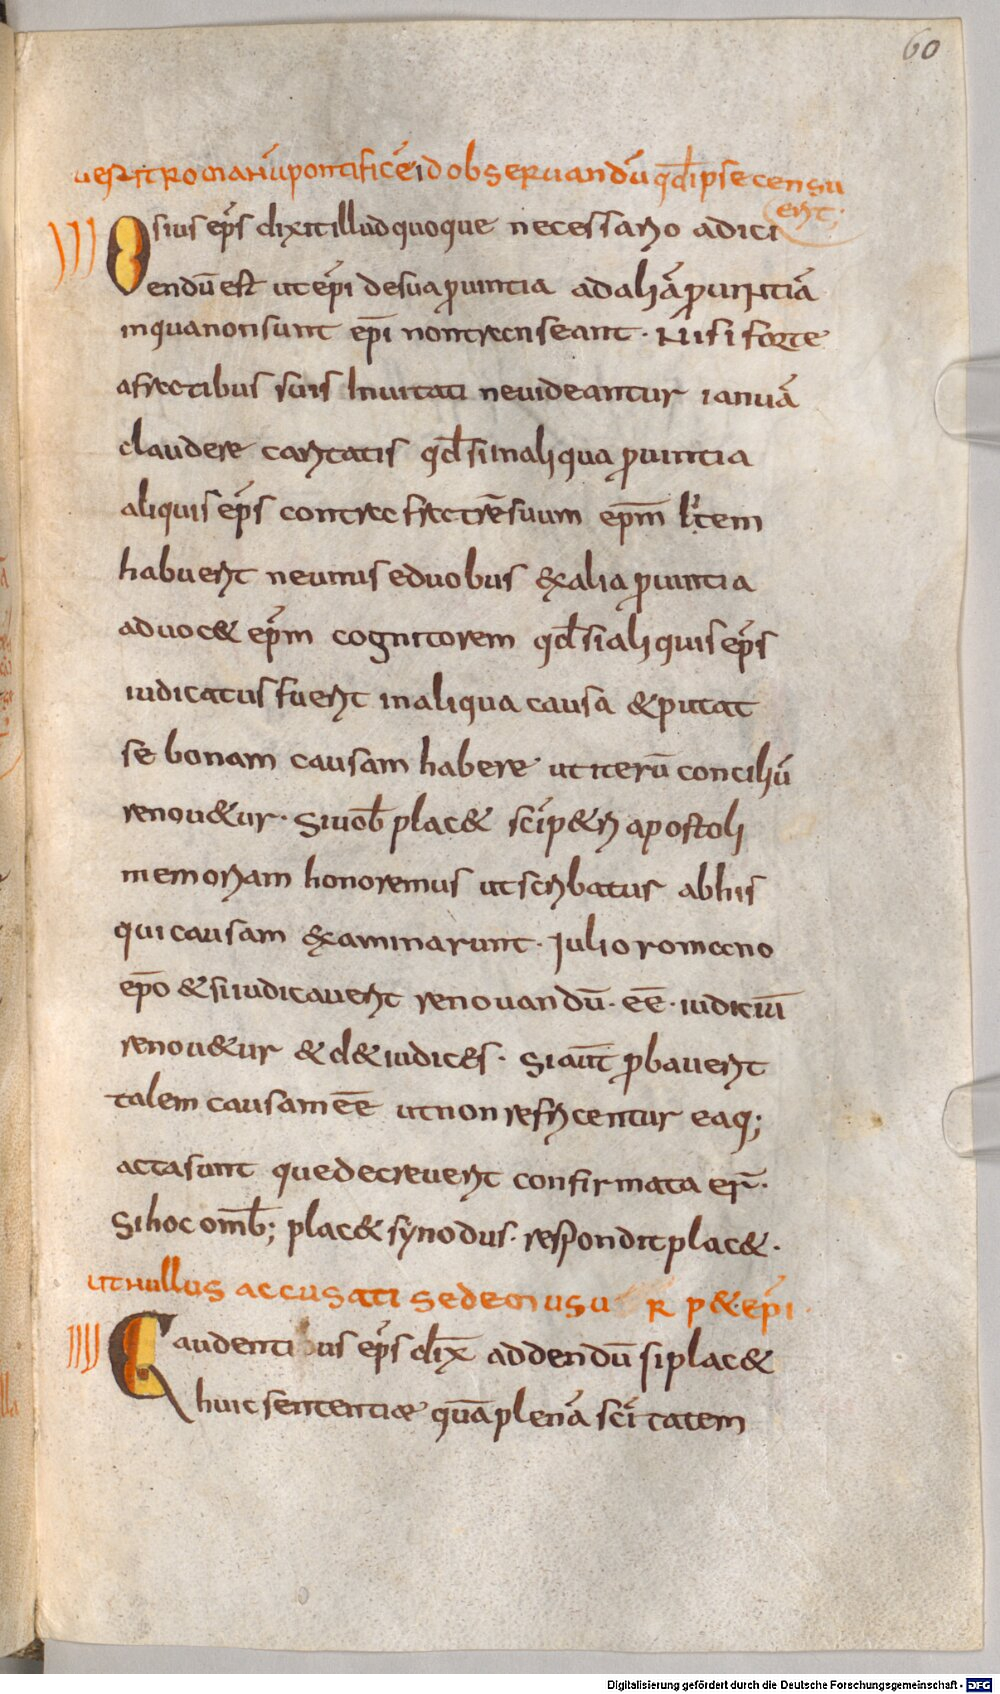 60
uerit romanū pontificē id obseruandū qđ ipse censu
erit;
III Osius ep̄s dixit illud quoque necessario adici
endū est ut ep̄i de sua prouintia ad aliā prouintiā
in qua non sunt ep̄i non transeant · Nisi forte
a fratribus suis Inuitati ne uideantur ianuā
claudere caritatis qđ si in aliqua prouintia
aliquis ep̄s contra fratrē suum ep̄m litem
habuerit ne unus e duobus ex alia prouintia
aduocet ep̄m cognitorem qđ si aliquis ep̄s
iudicatus fuerit in aliqua causa & putat
se bonam causam habere ut iterū conciliū
renouetur · Si uob̄ placet sc̄i petri apostoli
memoriam honoremus ut scribatur ab his
qui causam examinarunt · Iulio romano
ep̄o & si iudicauerit renouandū · eē · iudiciū
renouetur & det iudices · Si aut̄ probauerit
talem causam eē ut non refricentur eaq;
acta sunt que decreuerit confirmata er̄ ·
Si hoc omīb; placet synodus · respondit placet ·
ut nullus accusati sedem usur pet ep̄i
IIII Gaudentius ep̄s dix̄ addendū si placet
huic sententiæ quā plenā sc̄itatem
Digitalisierung gefördert durch die Deutsche Forschungsgemeinschaft - DFG